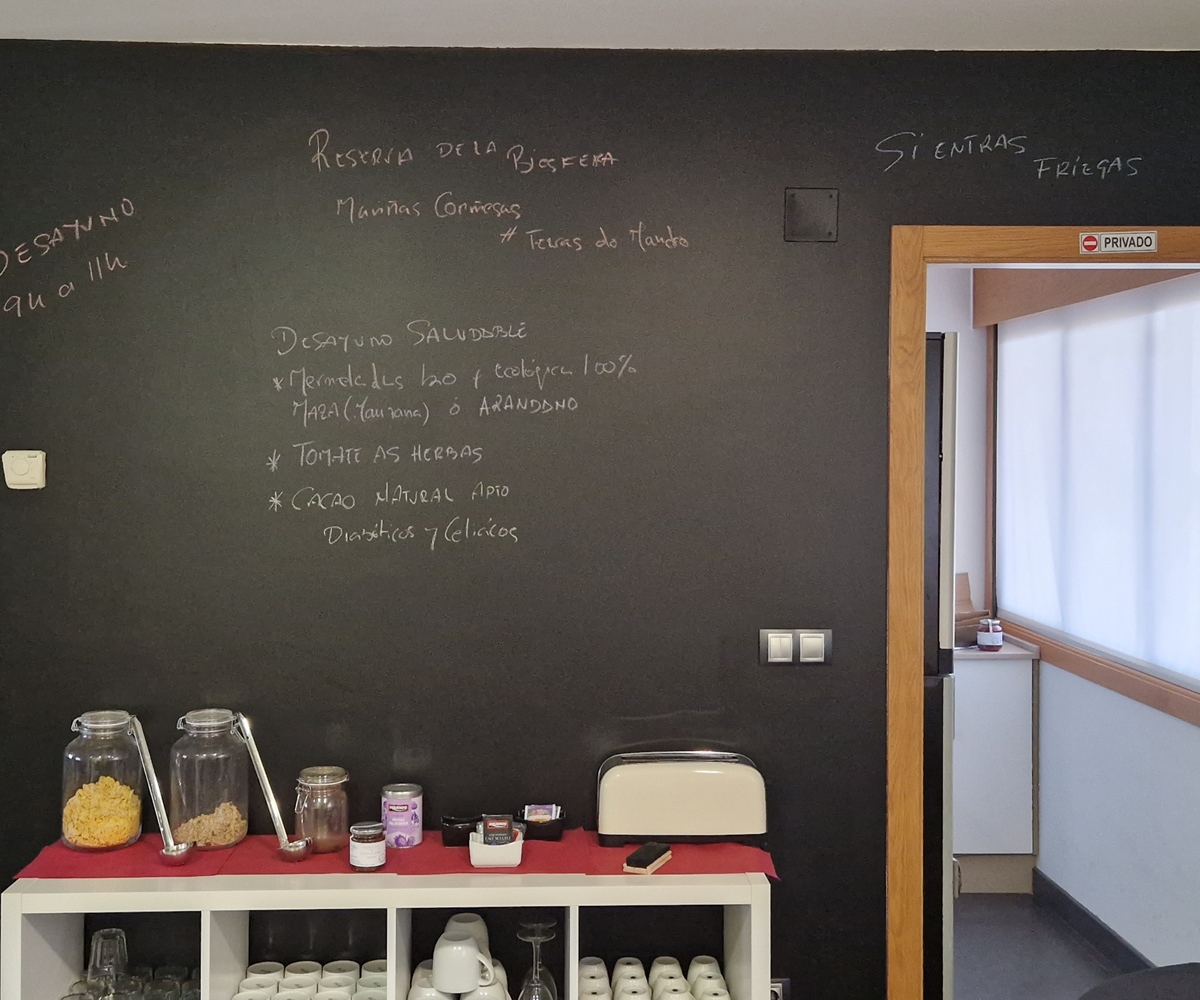 RESERVA DE LA BIOSFERA
Mariñas Coruñesas
# Terras do Mandeo
DESAYUNO
9h a 11h
SI ENTRAS
FRIEGAS
PRIVADO
DESAYUNO SALUDABLE
* Mermeladas y ecológica 100%
MAZA (Manzana) ó ARANDANO
* TOMATE AS HERBAS
* CACAO NATURAL APTO
Diabéticos y Celiácos